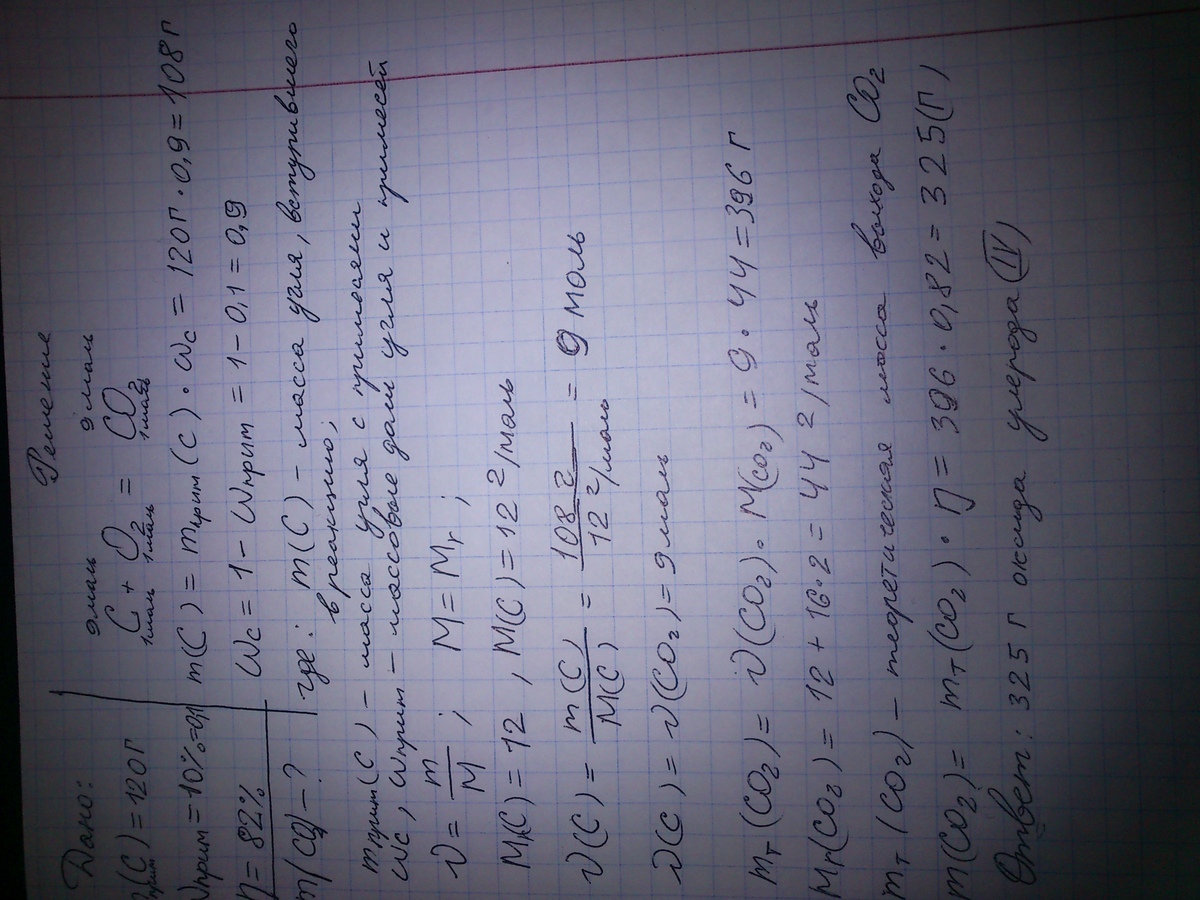 Дано:
mприм(C) = 120 г
Wприм = 10% = 0,1
η = 82%
m(CO2) - ?
Решение
9 моль 9 моль
C + O2 = CO2
1 моль 1 моль 1 моль
m(C) = mприм(C) · ωC = 120 г · 0,9 = 108 г
WC = 1 - Wприм = 1 - 0,1 = 0,9
где: m(C) - масса угля, вступившего
в реакцию;
mприм(C) - масса угля с примесями
WC, Wприм - массовые доли угля и примесей
ν = m/M ; M = Mr ;
Mr(C) = 12 , M(C) = 12 г/моль
ν(C) = m(C)/M(C) = 108 г/12 г/моль = 9 моль
ν(C) = ν(CO2) = 9 моль
mт(CO2) = ν(CO2) · M(CO2) = 9 · 44 = 396 г
Mr(CO2) = 12 + 16·2 = 44 г/моль
mт(CO2) - теоретическая масса выхода CO2
m(CO2) = mт(CO2) · η = 396 · 0,82 = 325(г)
Ответ: 325 г оксида углерода(IV)